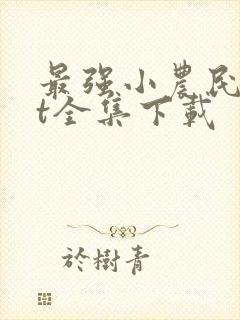 最强小農民
t全集下載
於樹青